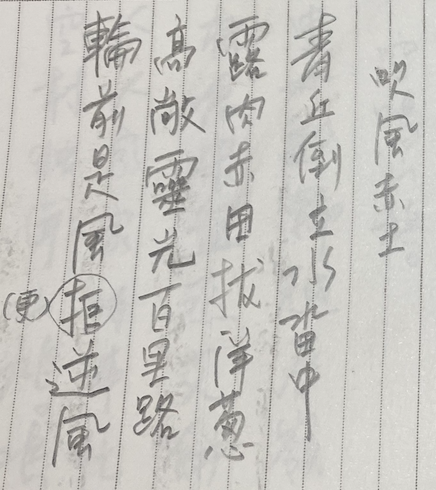 吹風赤土
青丘倒立水畓中
露肉赤田拔洋葱
高敞靈光百里路
輪前是風拒逆風
(更)